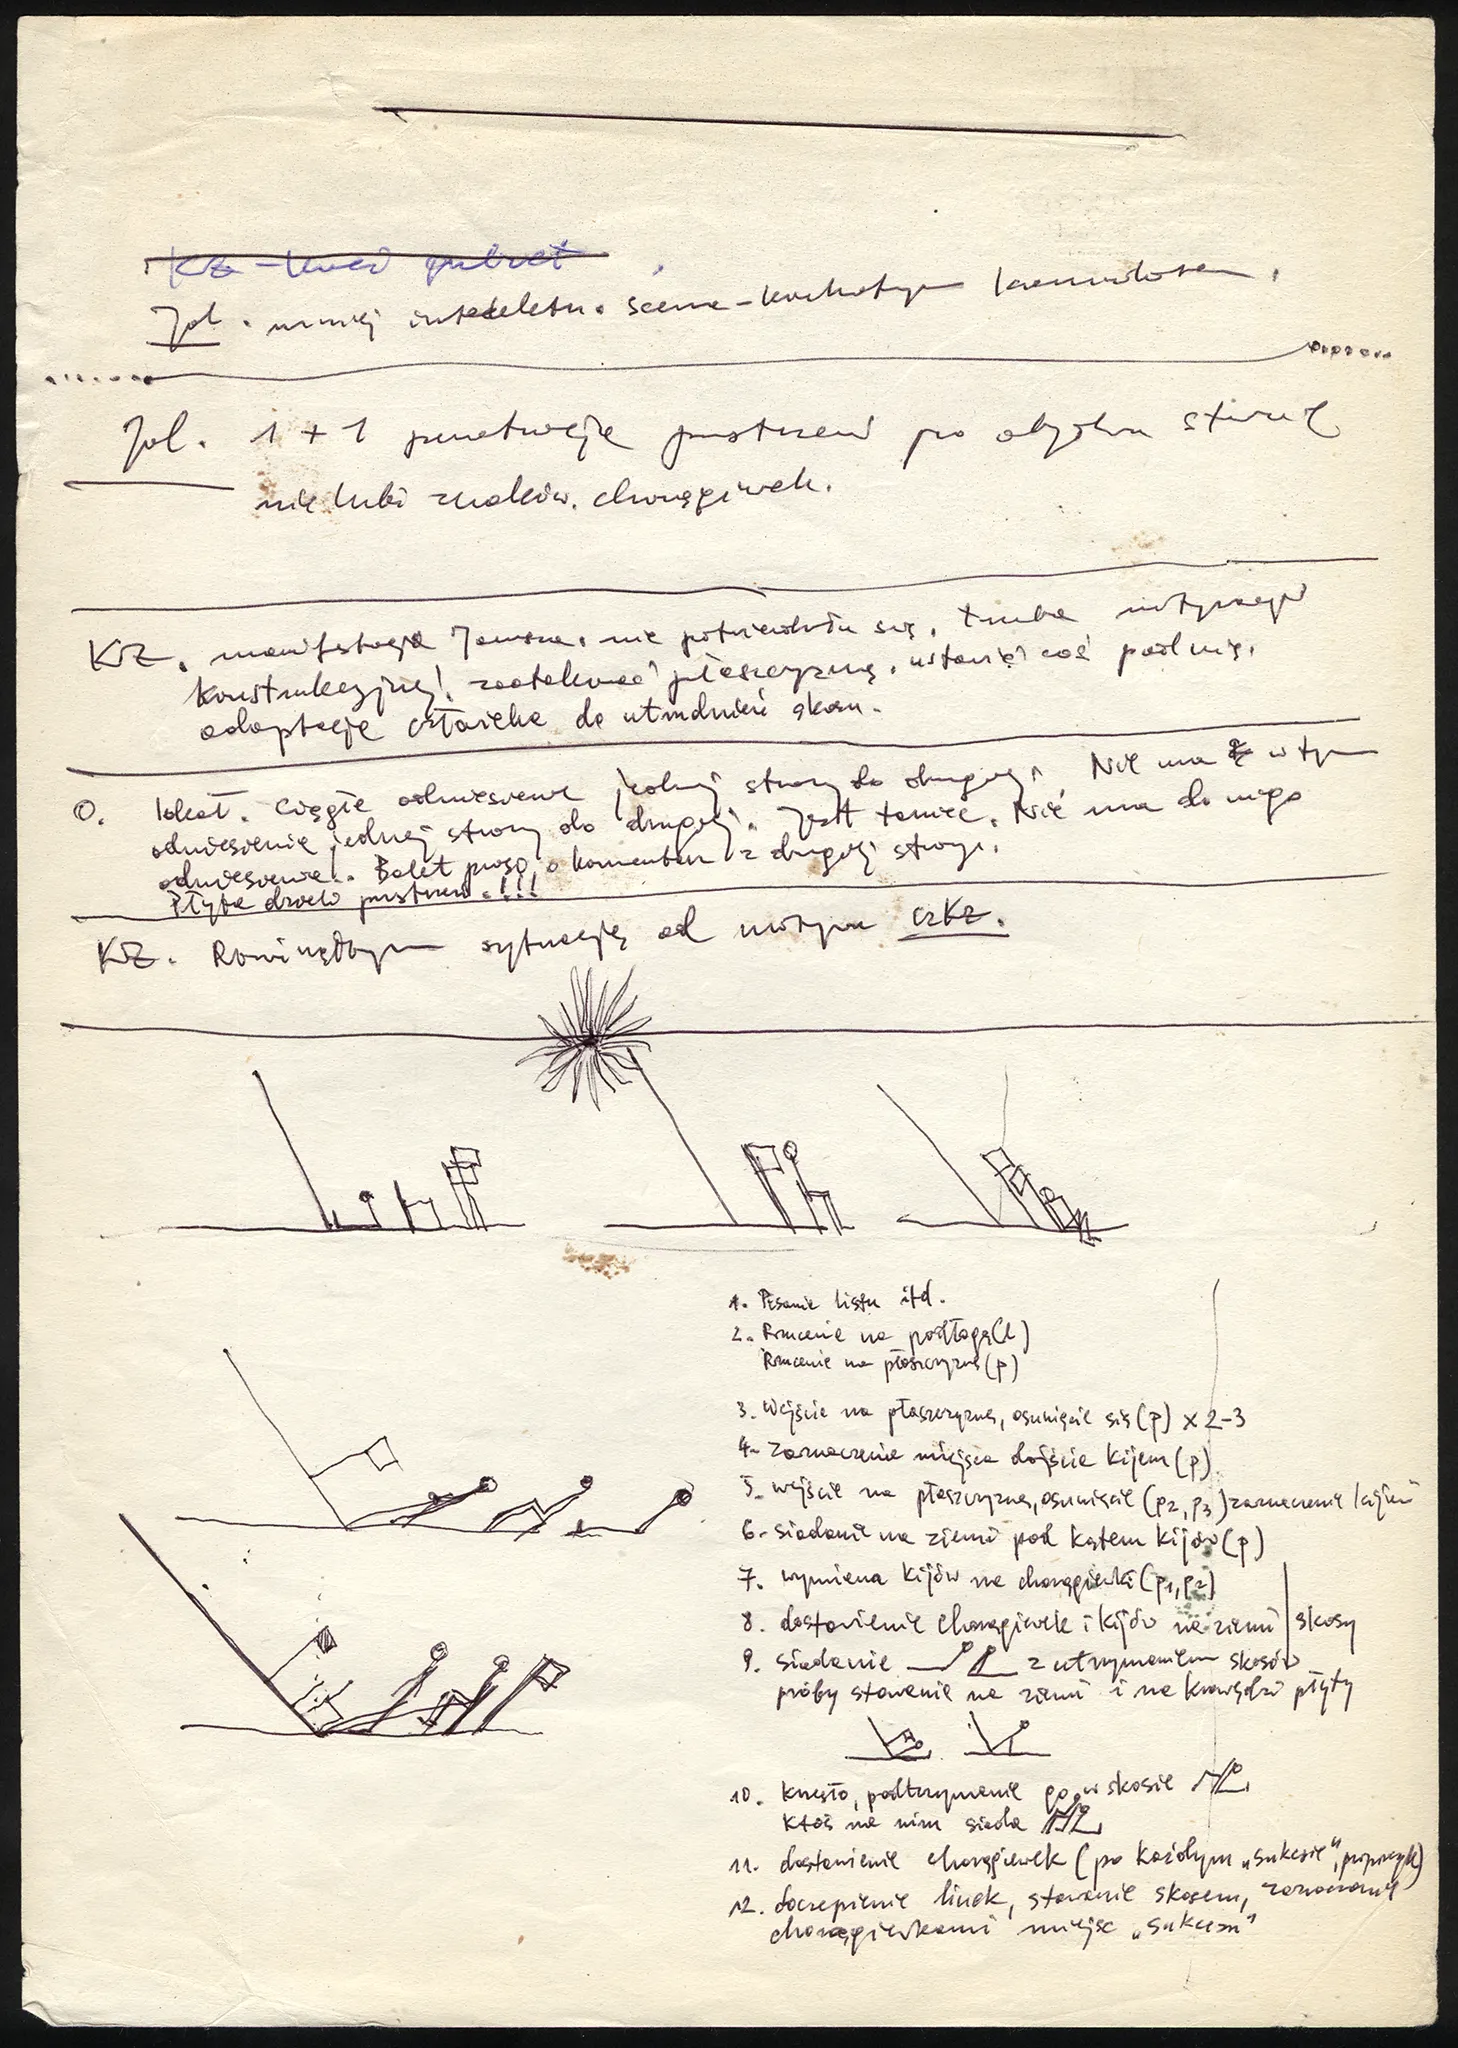 Jol. mniej intelektu. scena-
Jol. 1 + 1 penetrację przestrzeni po obydwu stronę
nie lubi znaków. chorągiewek.
KrZ. manifestacja Janusza. nie potwierdziła się. trzeba
konstrukcyjnej! zaatakować płaszczyznę. ustawić coś pod nią.
adaptację człowieka do utrudnień skosu.
O. Ideał. ciągłe odniesienie jednej strony do drugiej. Nie ma w tym
odniesienie jednej strony do drugiej. Jest taniec. Nie ma do niego
odniesienia. Balet proszę o komentarz z drugiej strony.
Płyta dzieli przestrzeń.!!!
KrZ. Rozwinąłbym sytuację od motywu czKrz.
1. Pisanie listu itd.
2. Rzucenie na podłogę(l)
Rzucenie na płaszczyznę (p)
3. Wejście na płaszczyznę, osunięcie się (p) x 2-3
4. zaznaczenie miejsca dojścia kijem (p)
5. wejście na płaszczyznę, osunięcie (p2, p3) zaznaczenie kijem
6. siadanie na ziemi pod kątem kijów (p)
7. wymiana kijów na chorągiewki (p1, p2)
8. dostawienie chorągiewek i kijów na ziemi skosy
9. siadanie z utrzymaniem skosów
próby stawania na ziemi i na krawędzi płyty
10. krzesło, podtrzymanie go w skosie
ktoś na nim siada
11. dostawienie chorągiewek (po każdym „sukcesie”, proporczyk)
12. doczepienie linek, stawanie skosem, zaznaczanie
chorągiewkami miejsc „sukcesu”